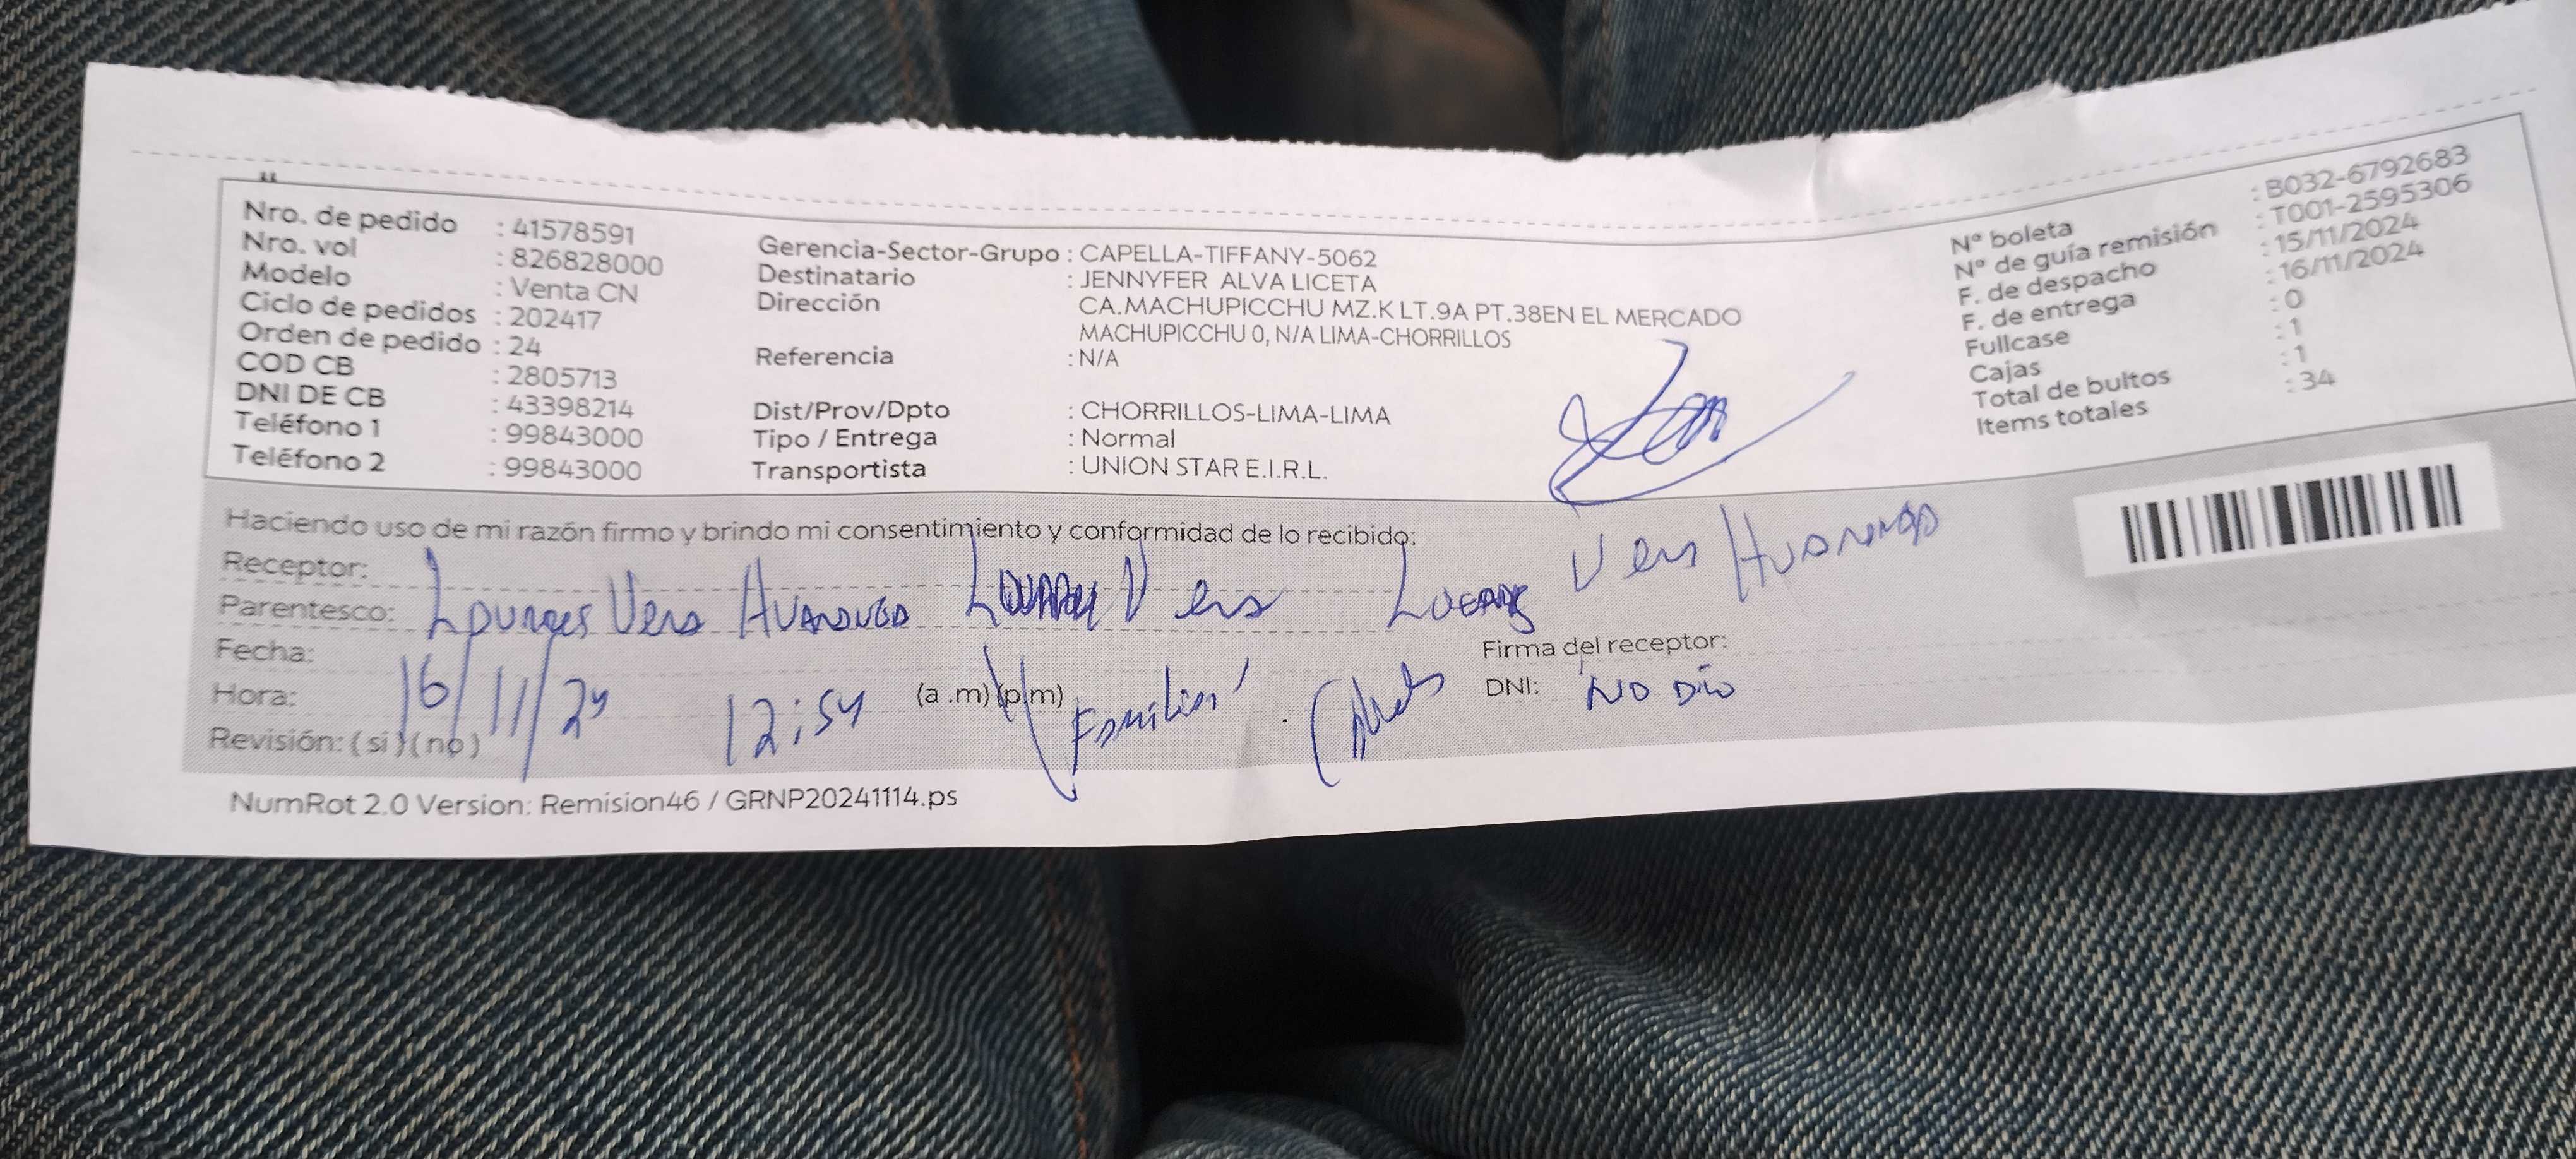 Nro. de pedido : 41578591
Nro. vol : 826828000
Modelo : Venta CN
Ciclo de pedidos : 202417
Orden de pedido : 24
COD CB : 2805713
DNI DE CB : 43398214
Teléfono 1 : 99843000
Teléfono 2 : 99843000
Gerencia-Sector-Grupo : CAPELLA-TIFFANY-5062
Destinatario : JENNYFER ALVA LICETA
Dirección CA.MACHUPICCHU MZ.K LT.9A PT.38EN EL MERCADO
MACHUPICCHU 0, N/A LIMA-CHORRILLOS
Referencia : N/A
Dist/Prov/Dpto : CHORRILLOS-LIMA-LIMA
Tipo / Entrega : Normal
Transportista : UNION STAR E.I.R.L.
N° boleta : B032-6792683
N° de guía remisión : T001-2595306
F. de despacho : 15/11/2024
F. de entrega : 16/11/2024
Fullcase : 0
Cajas : 1
Total de bultos : 1
Items totales : 34
Haciendo uso de mi razón firmo y brindo mi consentimiento y conformidad de lo recibido:
Receptor:
Parentesco: Lourdes Vera
Fecha: 16/11/24
Hora: 12:54 (a .m) (p.m) Familiar
Revisión: ( si ) ( no )
Firma del receptor:
DNI: NO DIO
NumRot 2.0 Version: Remision46 / GRNP20241114.ps